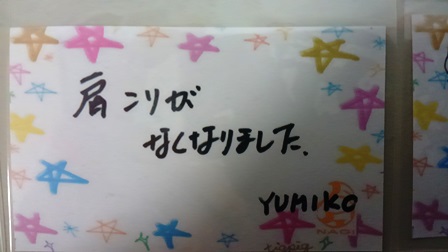 肩こりが
なくなりました.
YUMIKO
NAGI